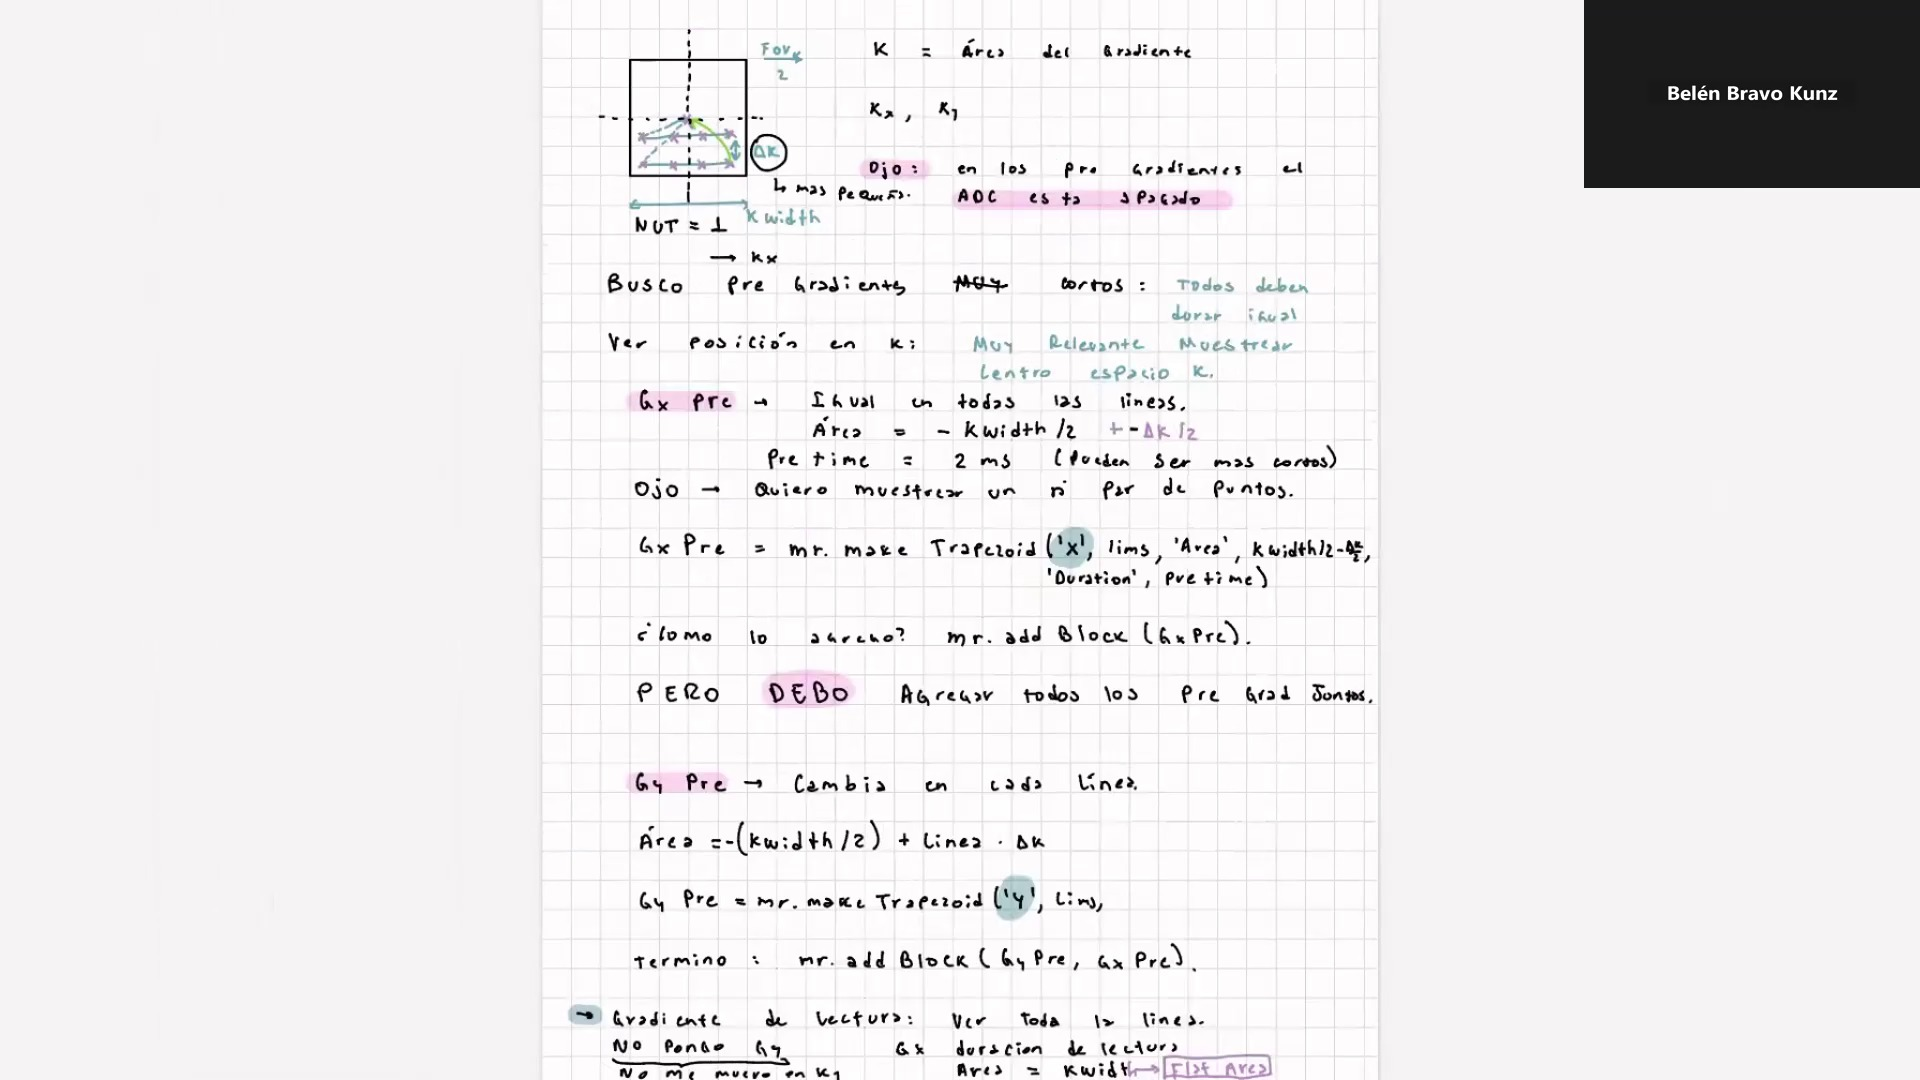 Belén Bravo Kunz
FOVx
2
K = Área del Gradiente
Kx, Ky
ΔK
↳ mas pequeño.
Ojo: en los pre Gradientes el
ADC esta apagado
K width
NUT = 1
→ Kx
Busco Pre Gradientes Muy cortos: Todos deben
durar igual
Ver posición en K: Muy Relevante Muestrear
Centro espacio K.
Gx Pre → Igual en todas las lineas.
Área = - Kwidth/2 + - ΔK/2
Pre time = 2 ms (pueden ser mas cortos)
Ojo → Quiero muestrear un n° Par de puntos.
Gx Pre = mr. make Trapezoid ('x', lims, 'Area', Kwidth/2-ΔK/2,
'Duration', pretime)
¿Como lo agrego? mr. add Block (Gx Pre).
PERO DEBO Agregar todos los Pre Grad Juntos.
Gy Pre → Cambia en cada Línea.
Área = -(Kwidth/2) + Linea · ΔK
Gy Pre = mr. make Trapezoid ('y', Lims,
termino : mr. add Block (Gy Pre, Gx Pre).
→ Gradiente de Lectura: Ver toda la linea.
No Pongo Gy Gx duracion de lectura
No me muevo en Ky Area = Kwidth → Flat Area